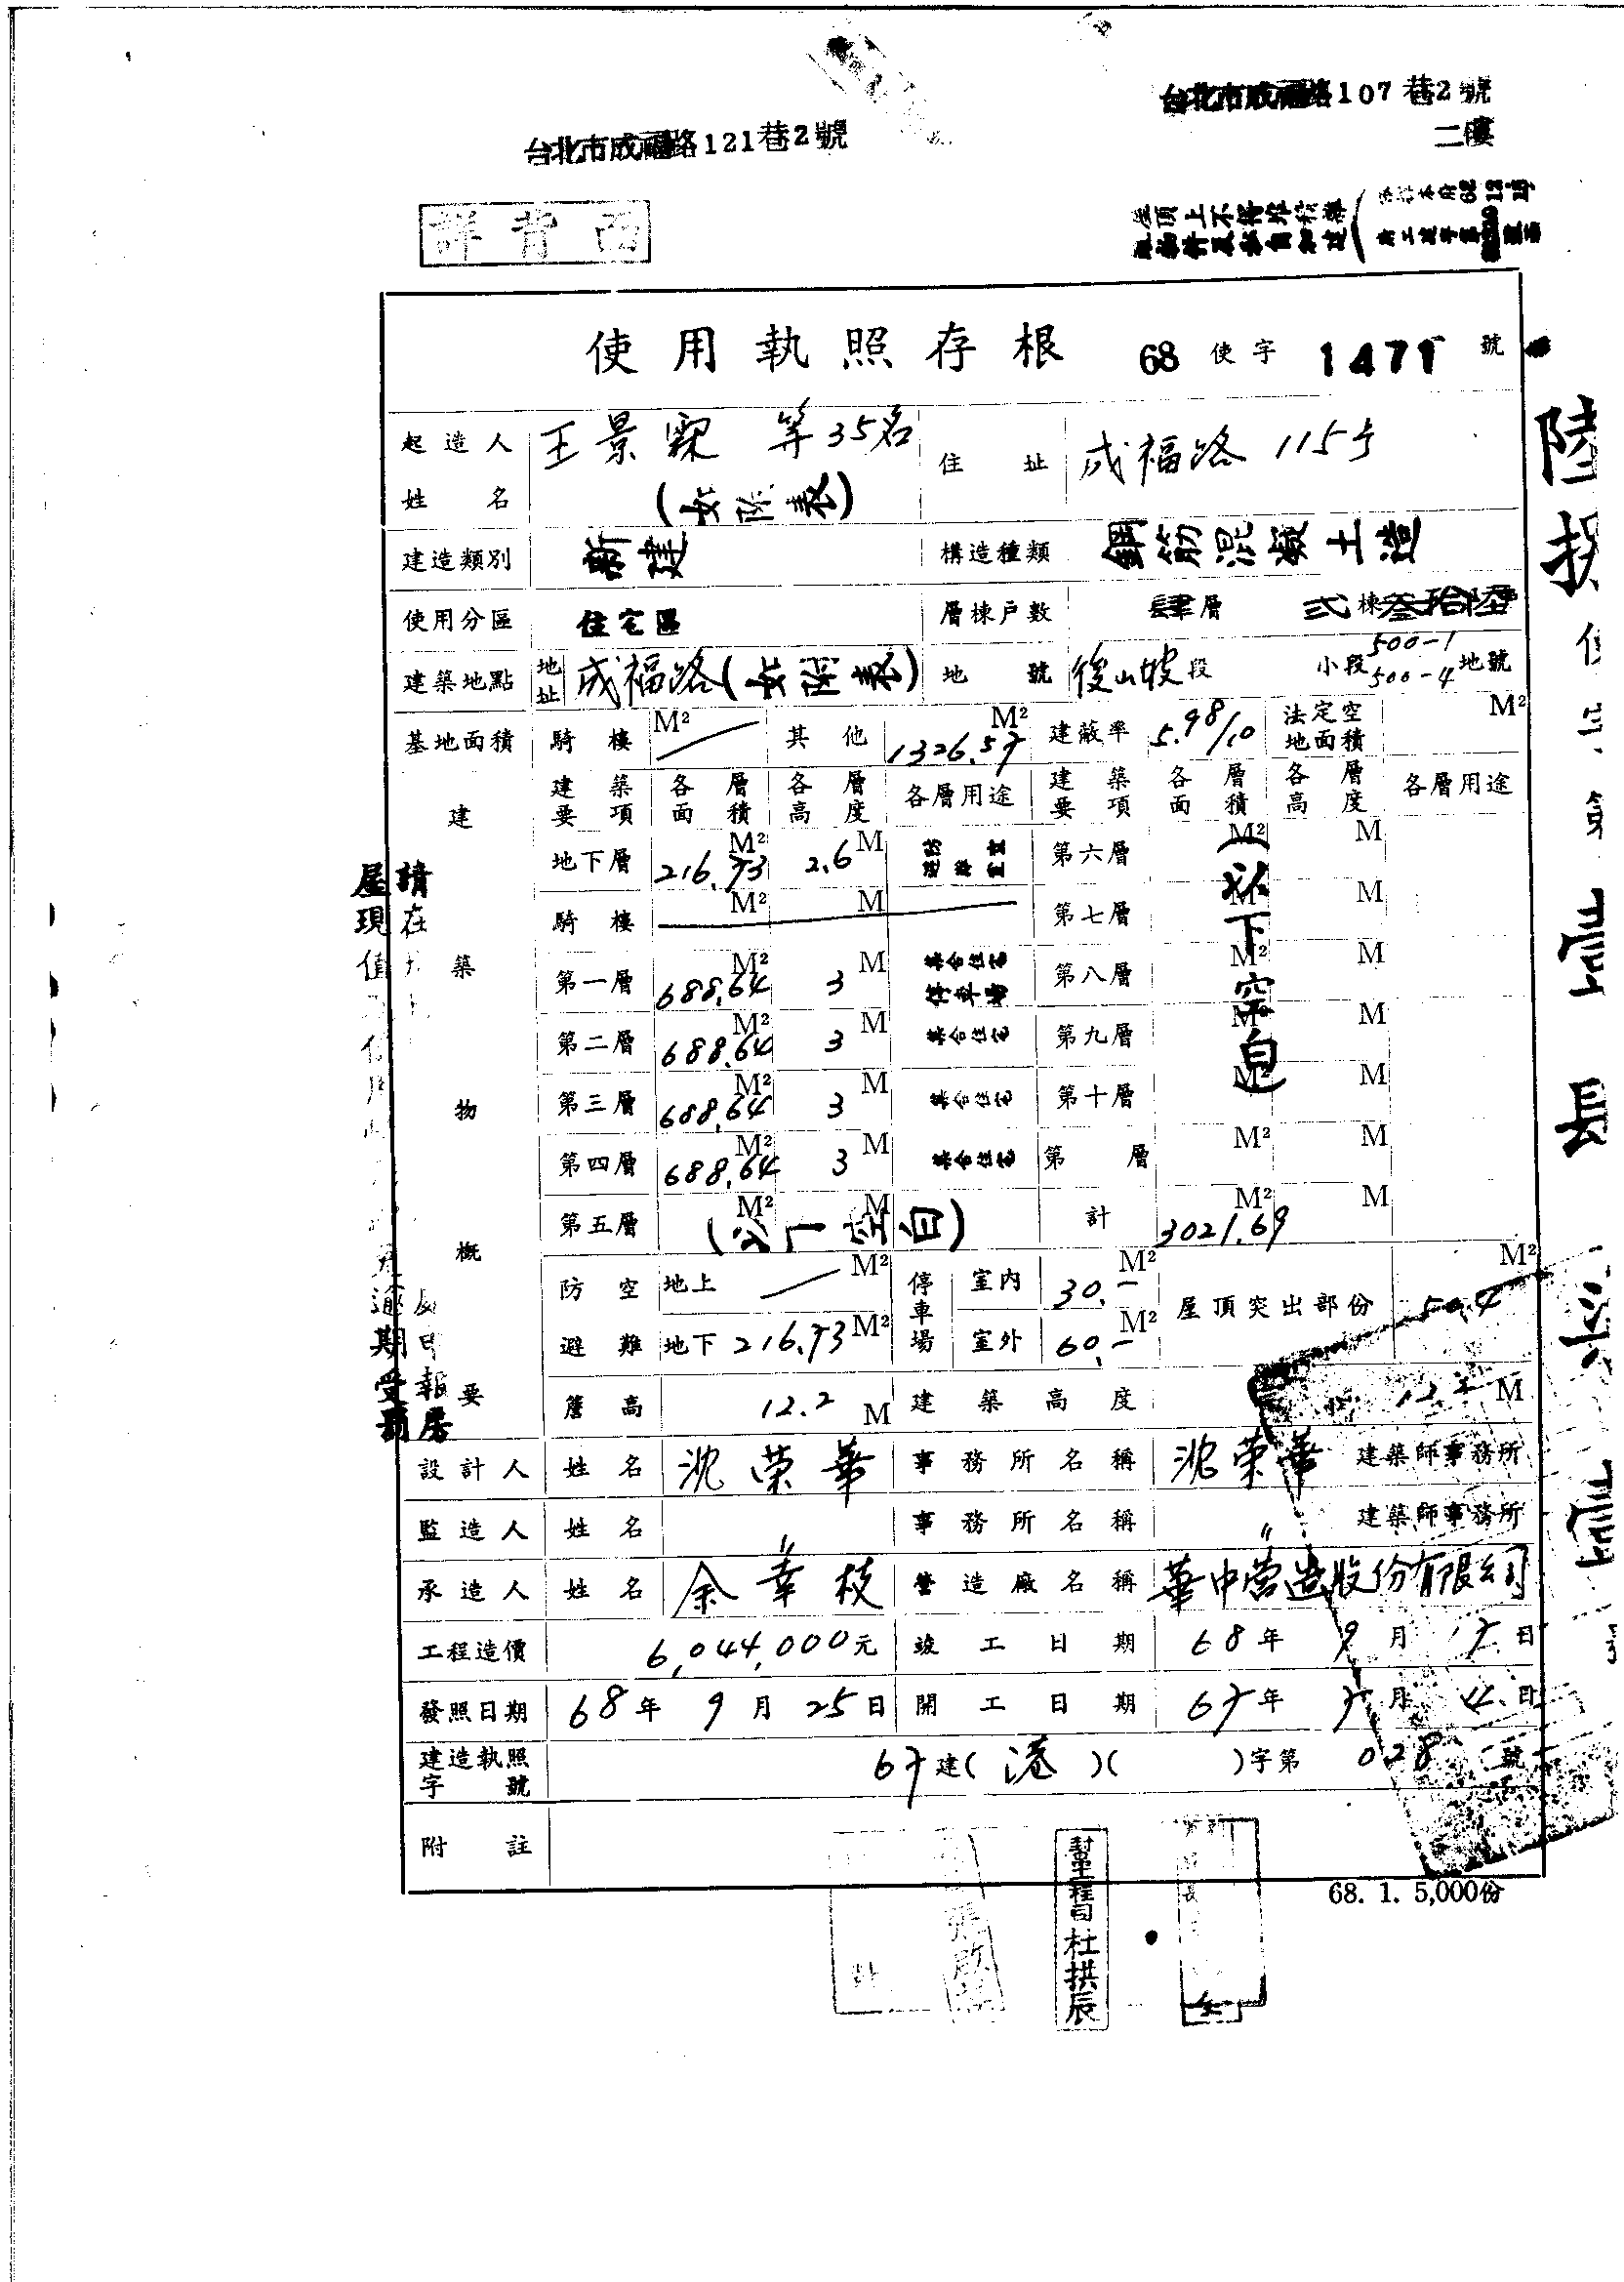 台北市成福路107巷2號
二樓
台北市成福路121巷2號
詳背面
使用執照存根 68 使字 1471 號
起造人姓名 王景霖 等35名 (如附表) 住址 成福路 115号
建造類別 新建 構造種類 鋼筋混凝土造
使用分區 住宅區 層棟戶數 肆層 弍棟叁拾陸
建築地點 地址 成福路(如附表) 地號 後山坡段 小段 500-1 500-4 地號
基地面積 騎樓 M² 其他 1326.57 M² 建蔽率 5.98/10 法定空地面積 M²
建築物概要
建築要項 各層面積 各層高度 各層用途 建築要項 各層面積 各層高度 各層用途
地下層 216.73 M² 2.6 M 第六層 M² M
騎樓 M² M 第七層 M² M
第一層 688.64 M² 3 M 集合住宅 停車場 第八層 M² M
第二層 688.64 M² 3 M 集合住宅 第九層 M² M
第三層 688.64 M² 3 M 集合住宅 第十層 M² M
第四層 688.64 M² 3 M 集合住宅 第 層 M² M
第五層 M² M (以下空白) 計 3021.69 M² M
(以下空白
防空避難 地上 M² 停車場 室內 30.- M² 屋頂突出部份 50.4 M²
地下 216.73 M² 室外 60.- M²
簷高 12.2 M 建築高度 12.2 M
設計人 姓名 沈荣華 事務所名稱 沈荣華 建築師事務所
監造人 姓名 〃 事務所名稱 〃 建築師事務所
承造人 姓名 余幸枝 營造廠名稱 華中营造股份有限公司
工程造價 6,044,000元 竣工日期 68年 9月 7日
發照日期 68年 9月 25日 開工日期 67年 7月 4日
建造執照字號 67建(港)( )字第 028 號
附註
68. 1. 5,000份
幫工程司 杜拱辰